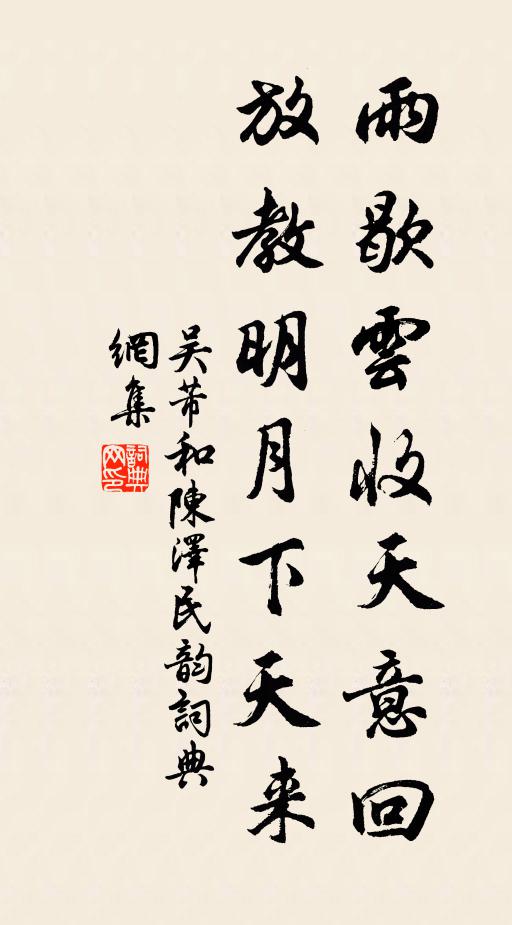 雨歇雲收天意回
放教明月下天来
吴芾和陳澤民韵詞典
網集
詞典
网印